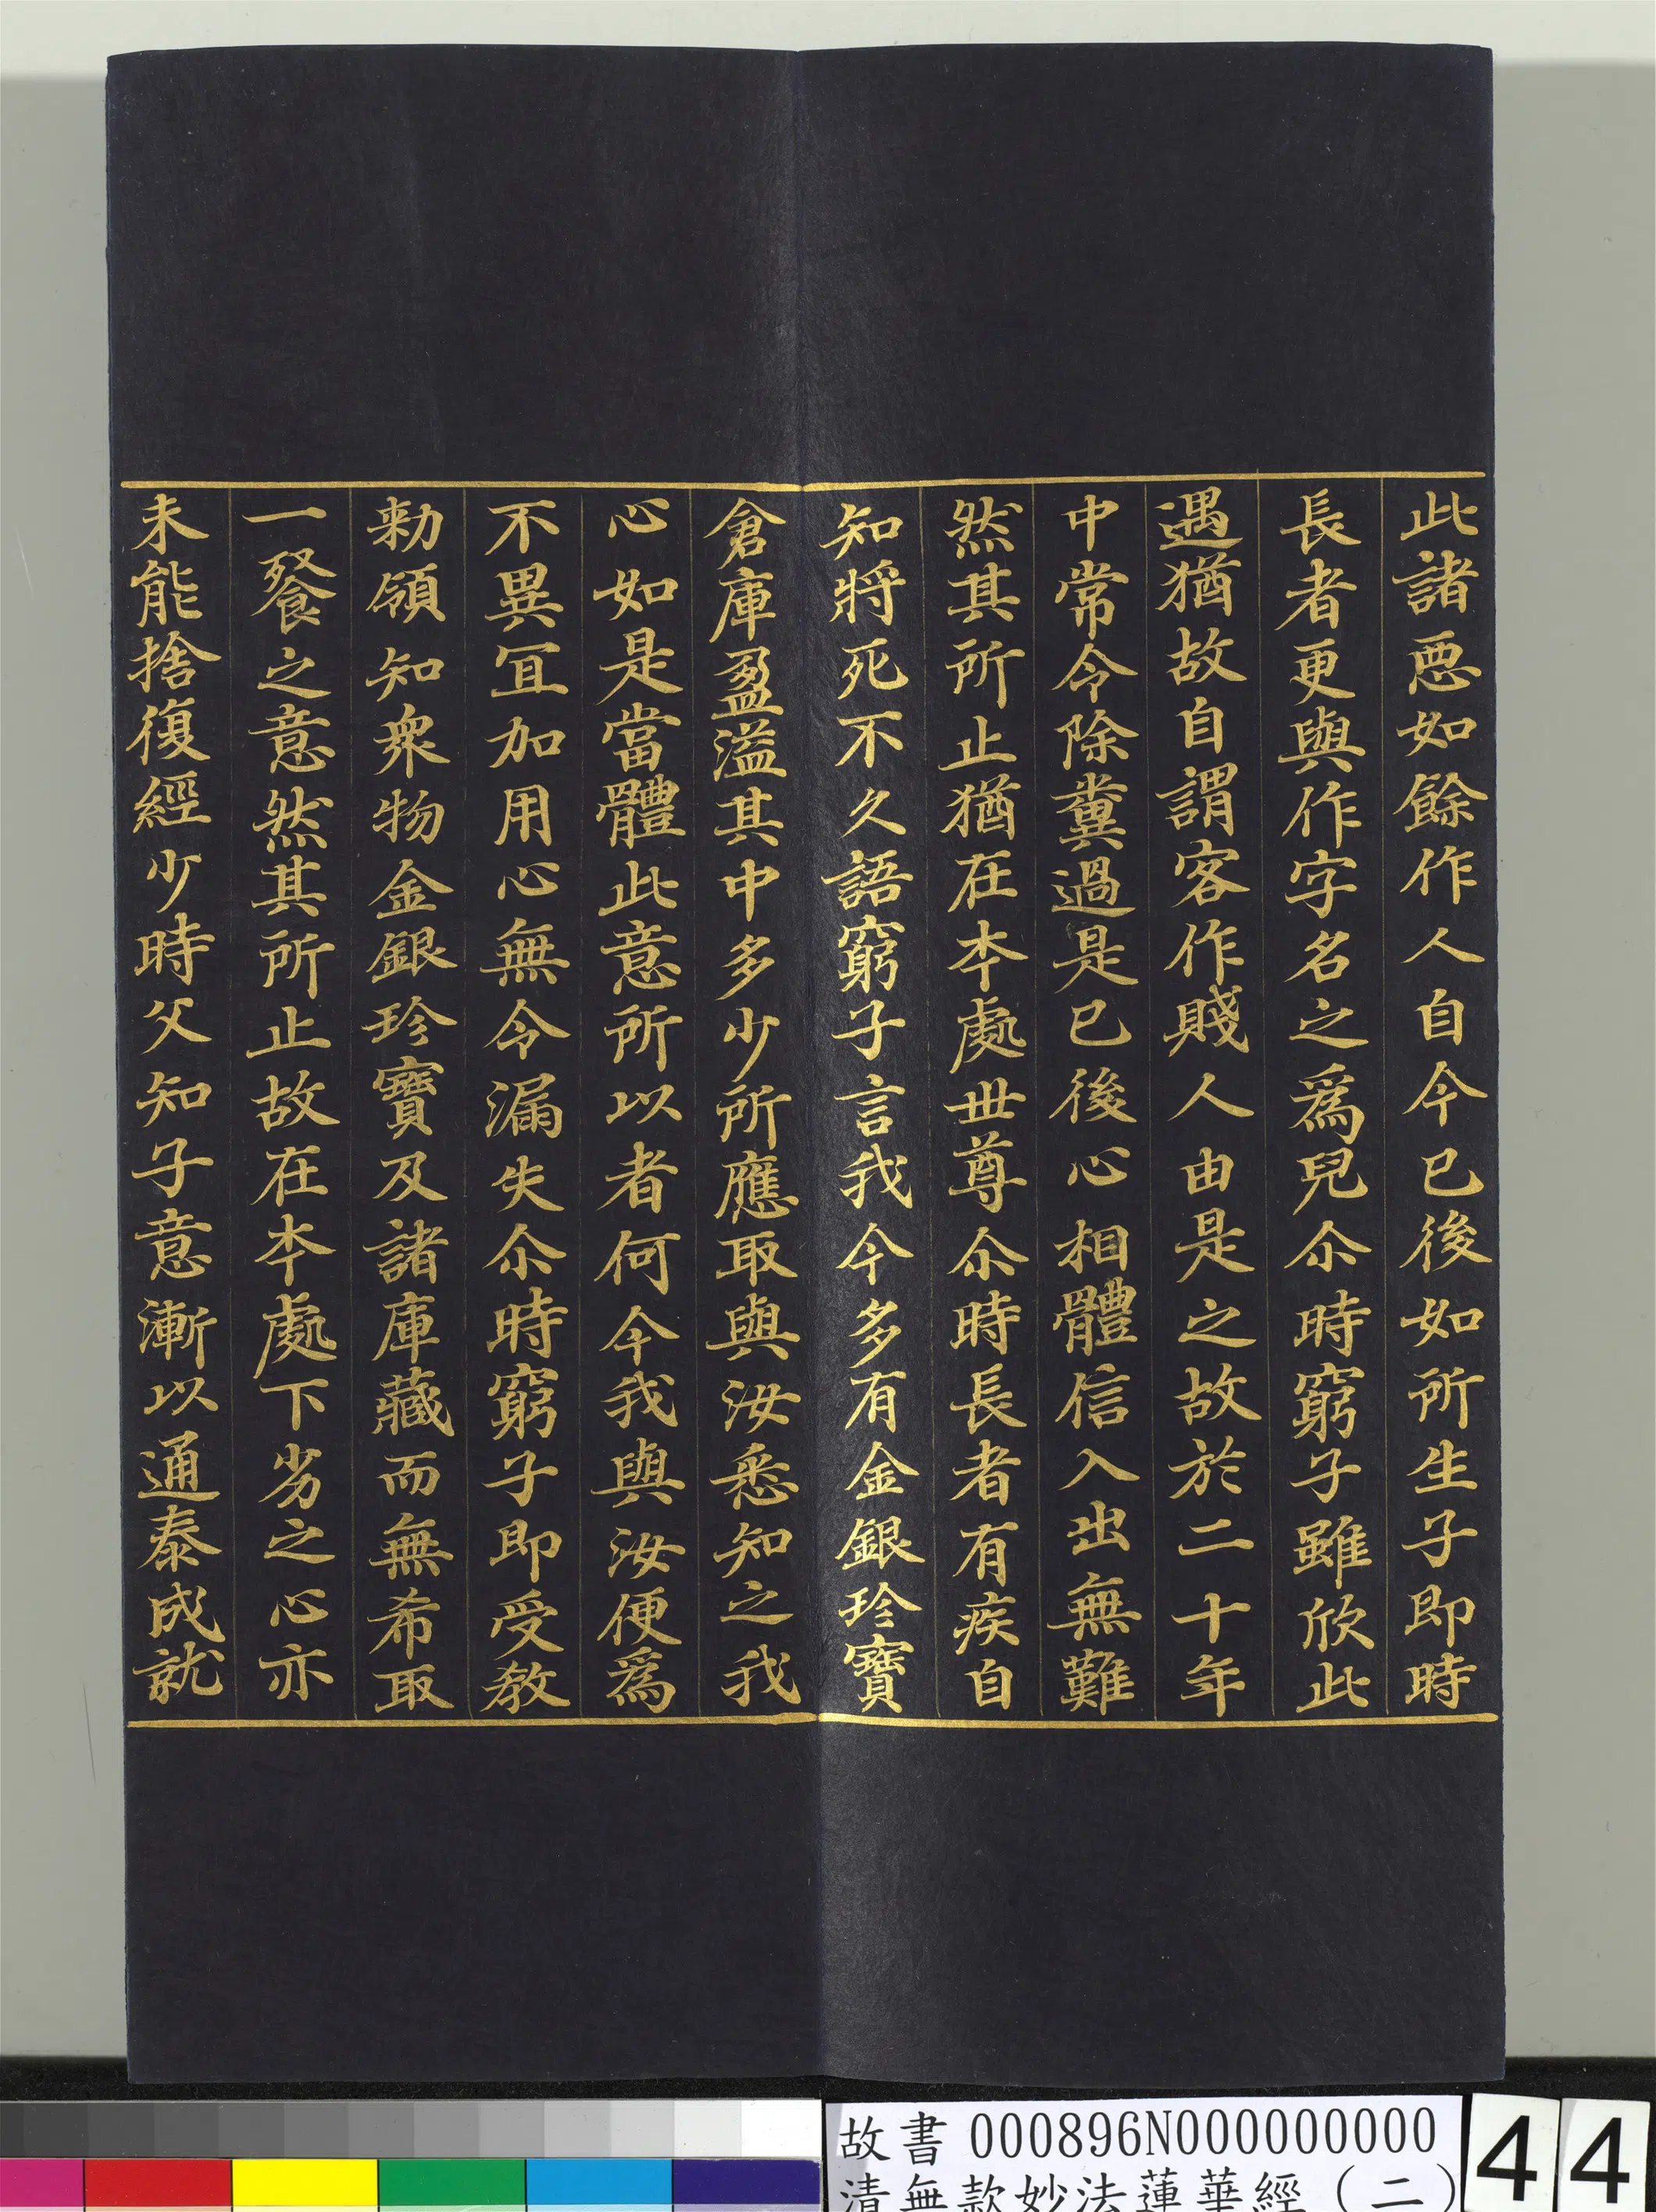 此諸惡如餘作人自今已後如所生子即時
長者更與作字名之爲兒尒時窮子雖欣此
遇猶故自謂客作賤人由是之故於二十年
中常令除糞過是已後心相體信入出無難
然其所止猶在本處世尊尒時長者有疾自
知將死不久語窮子言我今多有金銀珍寶
倉庫盈溢其中多少所應取與汝悉知之我
心如是當體此意所以者何今我與汝便爲
不異宜加用心無令漏失尒時窮子即受教
勑領知衆物金銀珍寶及諸庫藏而無希取
一餐之意然其所止故在本處下劣之心亦
未能捨復經少時父知子意漸以通泰成就
故書 000896N000000000
清無款妙法蓮華經（二）
44